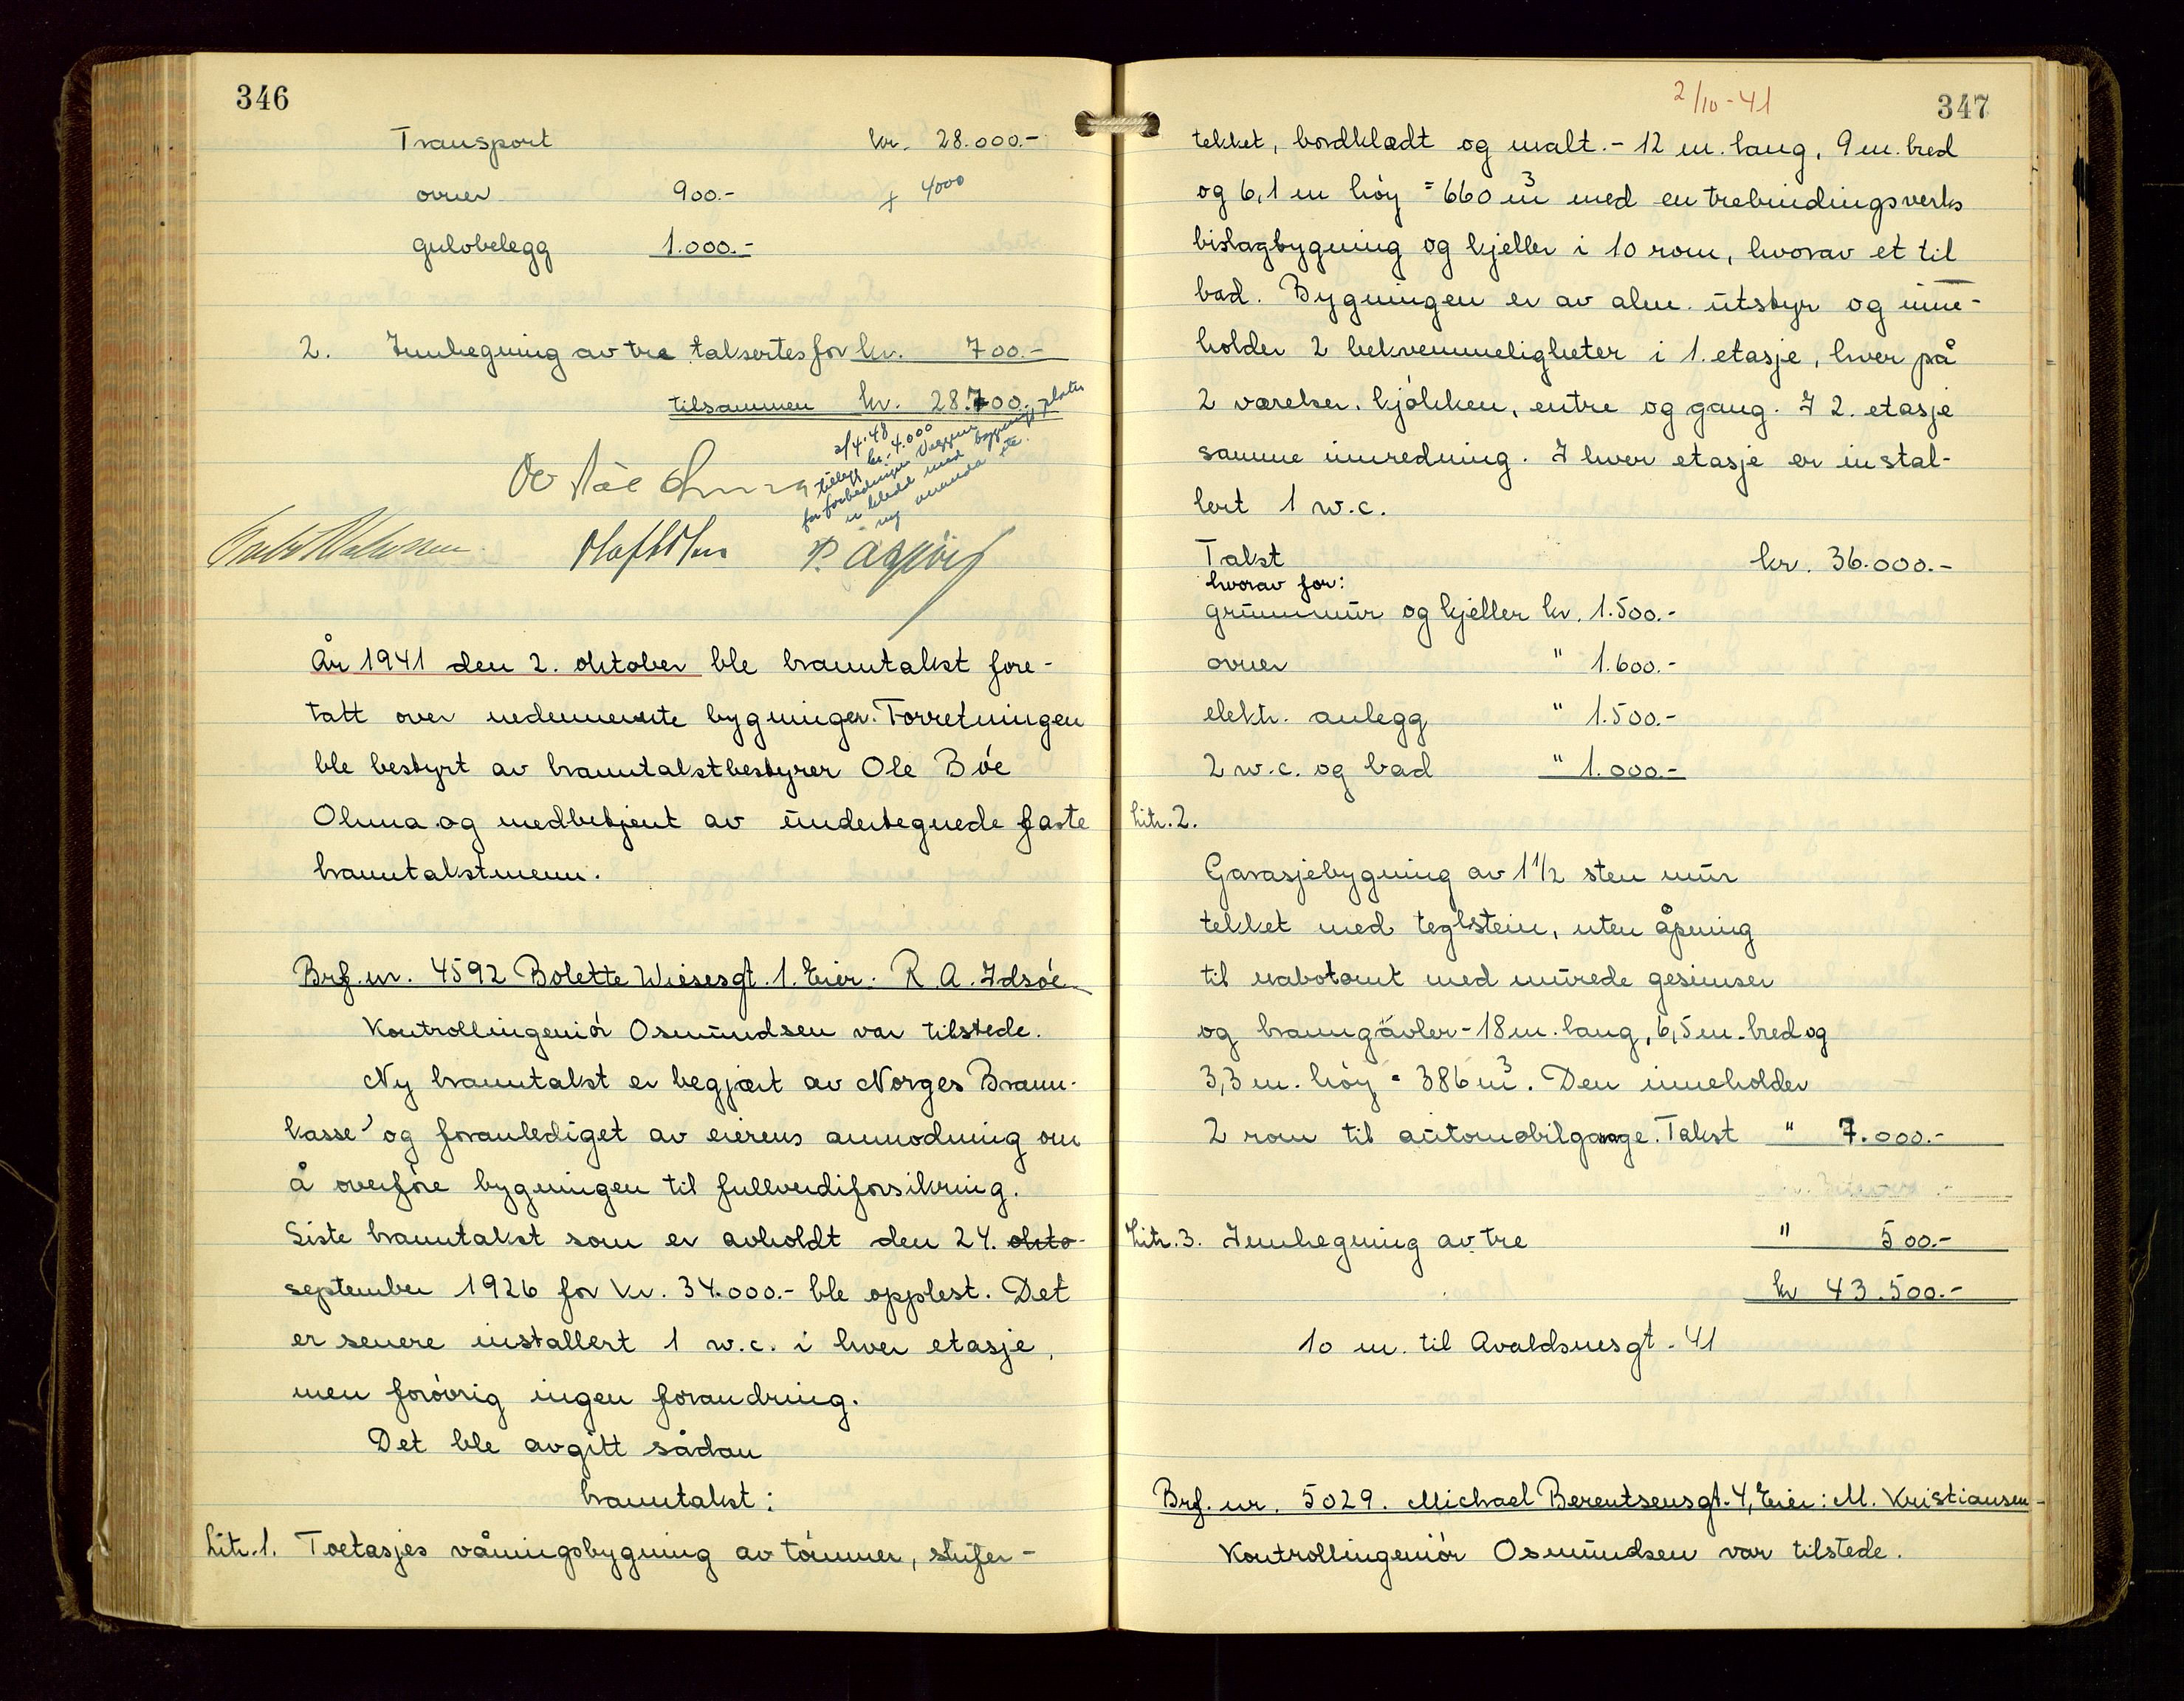 346
Transport kr. 28.000.-
ovner 900.- + 4000
gulvbelegg 1.000.-
2. Innhegning av tre taksertes for kr. 700.-
tilsammen kr. 28.700.-
2/4-48
tillegg kr. 4.000
for forbedringer Veggene
er kledd med bygningsplater
ny veranda etc.
År 1941 den 2. oktober ble branntakst fore-
tatt over nedennevnte bygninger. Forretningen
ble bestyrt av branntakstbestyrer Ole Bøe
Ohma og medbetjent av undertegnede faste
branntakstmenn.
Brf. nr. 4592 Bolette Wiesesgt. 1. Eier: R. A. Idsøe
Kontrollingeniør Osmundsen var tilstede.
Ny branntakst er begjært av Norges Brann-
kasse og foranlediget av eierens anmodning om
å overføre bygningen til fullverdiforsikring.
Siste branntakst som er avholdt den 24. okto-
september 1926 for kr. 34.000.- ble opplest. Det
er senere installert 1 w.c. i hver etasje,
men forøvrig ingen forandring.
Det ble avgitt sådan
branntakst:
Litr. 1. Toetasjes våningsbygning av tømmer, skifer-
2/10-41
347
tekket, bordklædt og malt. - 12 m. lang, 9 m. bred
og 6,1 m høy = 660 m³ med en trebindingsverks
bislagbygning og kjeller i 10 rom, hvorav et til
bad. Bygningen er av alm. utstyr og inne-
holder 2 bekvemmeligheter i 1. etasje, hver på
2 værelser, kjøkken, entre og gang. I 2. etasje
samme innredning. I hver etasje er instal-
lert 1 w.c.
Takst kr. 36.000.-
hvorav for:
grunnmur og kjeller kr. 1.500.-
ovner " 1.600.-
elektr. anlegg " 1.500.-
2 w.c. og bad " 1.000.-
Litr. 2.
Garasjebygning av 1 1/2 sten mur
tekket med teglstein, uten åpning
til nabotomt med murede gesimser
og branngavler - 18 m. lang, 6,5 m. bred og
3,3 m. høy = 386 m³. Den inneholder
2 rom til automobilgarage. Takst " 7.000.-
Litr. 3. Innhegning av tre " 500.-
kr 43.500.-
10 m. til Avaldsnesgt. 41
Brf. nr. 5029. Michael Berentsensgt. 4, Eier: M. Kristiansen
Kontrollingeniør Osmundsen var tilstede.